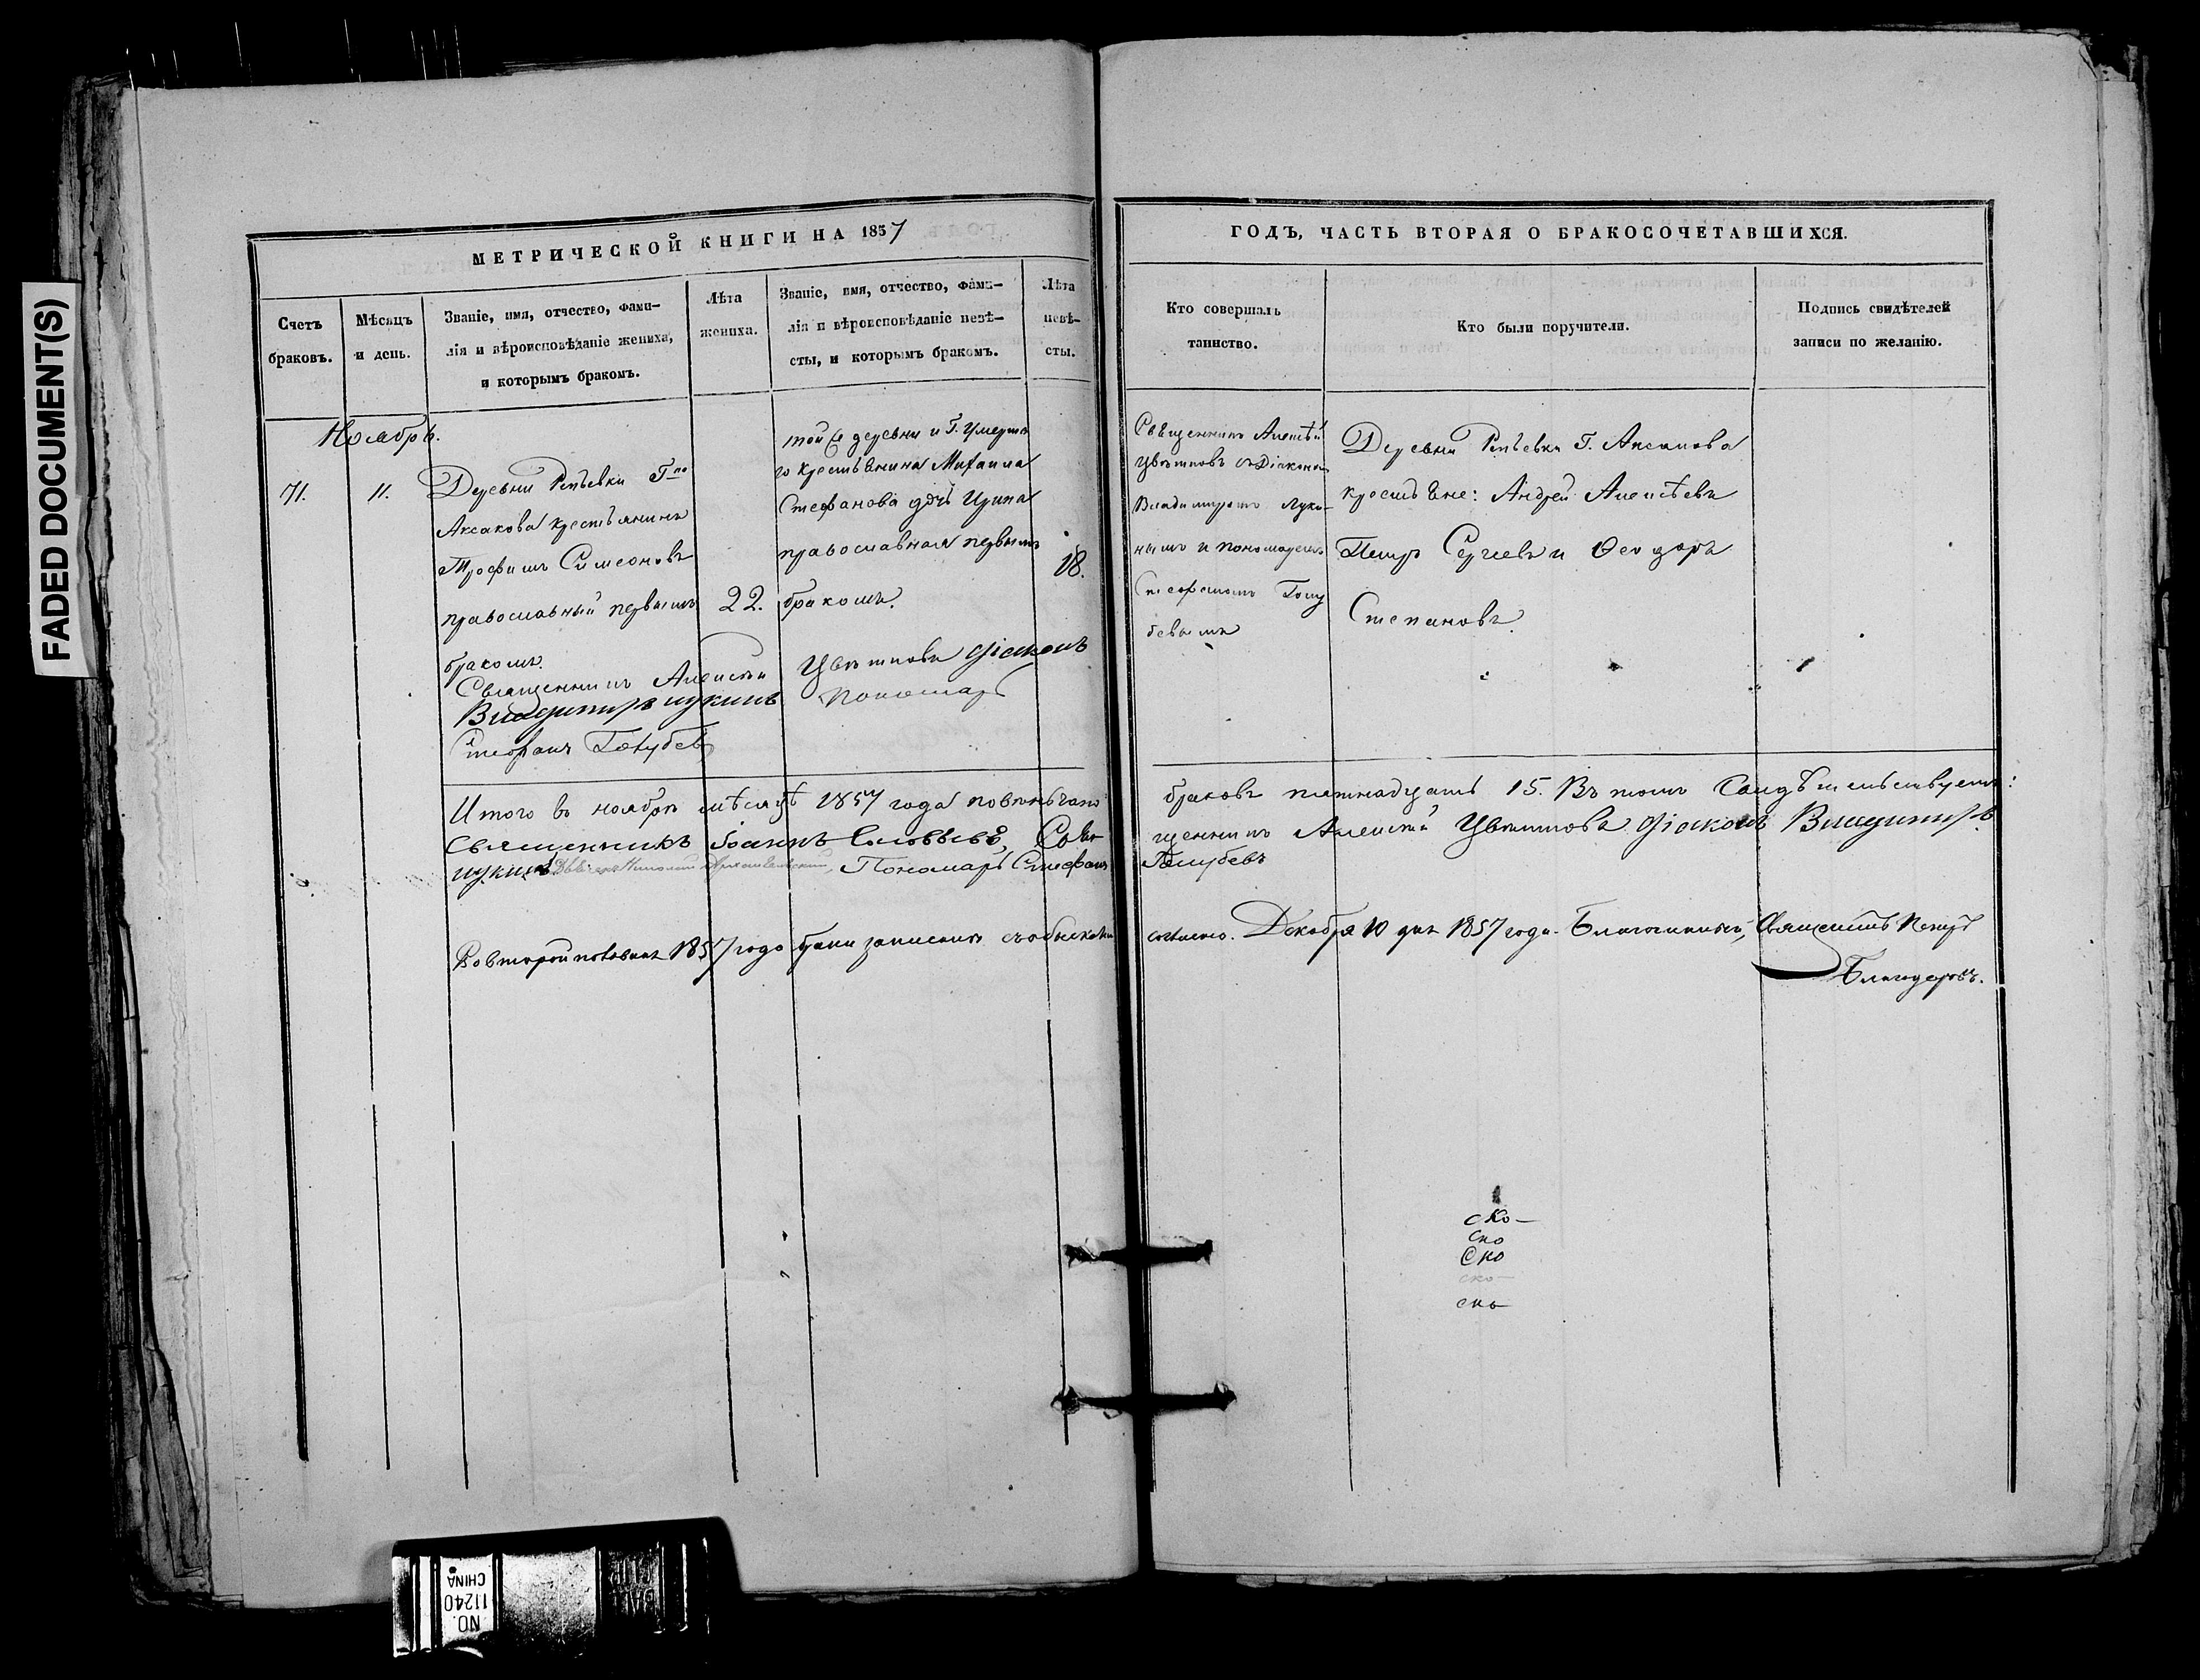 FADED DOCUMENT(S)
МЕТРИЧЕСКОЙ КНИГИ НА 1857
Счетъ
браковъ.
Мѣсяцъ
и день.
Званіе, имя, отчество, фами-
лія и вѣроисповѣданіе жениха,
и которымъ бракомъ.
Лѣта
жениха.
Званіе, имя, отчество, фами-
лія и вѣроисповѣданіе невѣ-
сты, и которымъ бракомъ.
Лѣта
невѣ-
сты.
Ноябрь.
71.
11.
Деревни Репьевки Гна
Аксакова крестьянинъ
Трофимъ Симеоновъ
православный первымъ
бракомъ.
22.
той же деревни и Г. умерша
го крестьянина Михаила
Стефанова дочь Ирина
православная первымъ
бракомъ.
18.
Священникъ Алексѣй Цвѣтковъ Діаконъ
Владимиръ Лукинъ Пономарь
Стефанъ Голубевъ
Итого въ ноябрѣ мѣсяцѣ 1857 года повѣнчано
Священникъ Іоаннъ Соловьевъ, Свя-
Лукинъ Николай Пономарь Стефанъ
Во второй половинѣ 1857 года браки записаны съ обысками
ГОДЪ, ЧАСТЬ ВТОРАЯ О БРАКОСОЧЕТАВШИХСЯ.
Кто совершалъ
таинство.
Кто были поручители.
Подпись свидѣтелей
записи по желанію.
Священникъ Алексѣй
Цвѣтковъ съ Діакономъ
Владимиромъ Луки-
нымъ и пономаремъ
Стефаномъ Голу
бевымъ
Деревни Репьевки Г. Аксакова
крестьяне: Андрей Алексѣевъ
Петръ Сергѣевъ и Ѳеодоръ
Степановъ.
браковъ пятнадцать 15. Въ томъ свидѣтельствуемъ:
щенникъ Алексѣй Цвѣтковъ Діаконъ Владимиръ
Голубевъ
согласно. Декабря 10 дня 1857 года. Благочинный, Священникъ Петръ
ско-
ско
Ско
ско-
ско
NO.
11240
CHINA